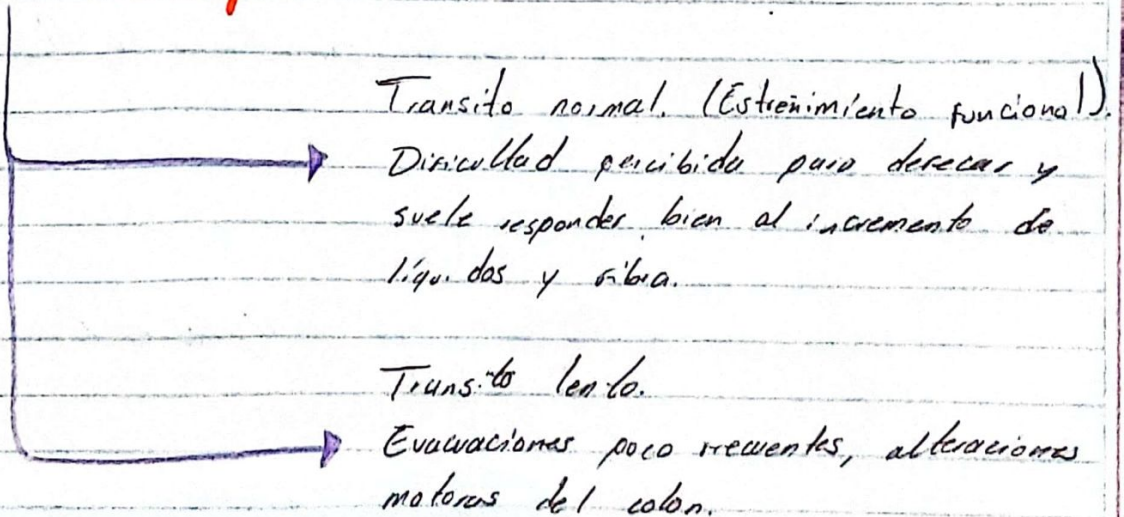 Transito normal. (Estreñimiento funcional).
Dificultad percibida para defecar y
suele responder bien al incremento de
líquidos y fibra.
Transito lento.
Evacuaciones poco frecuentes, alteraciones
motoras del colon.